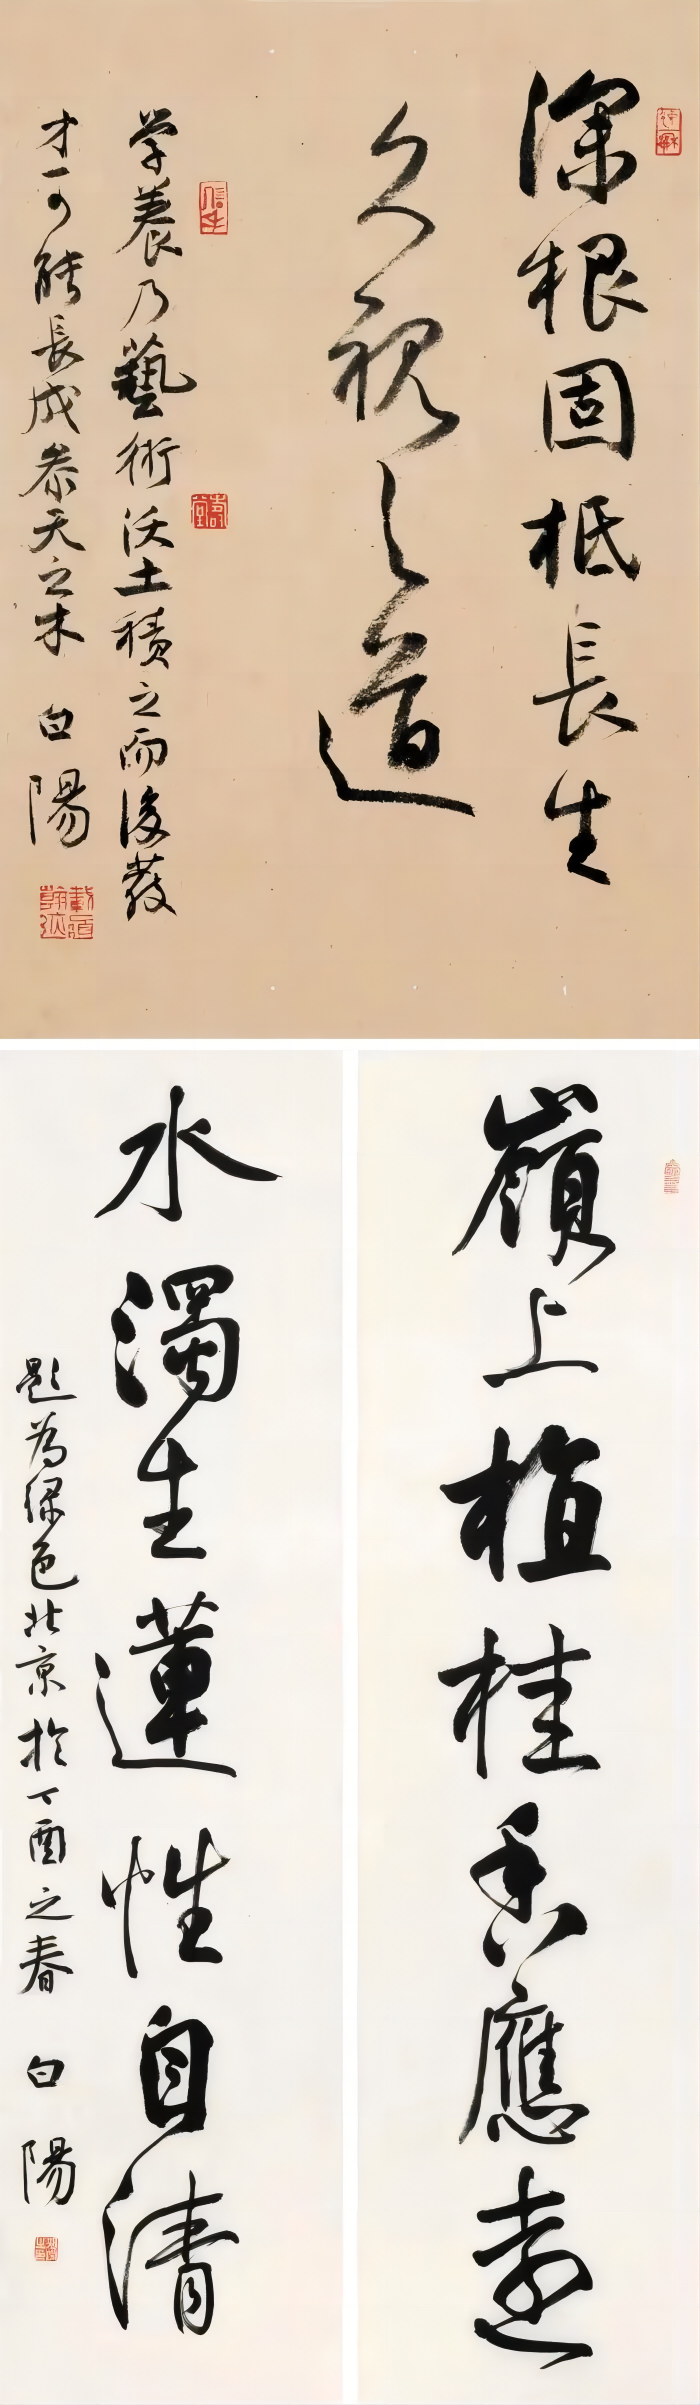 深根固柢長生
久視之道
学養乃藝術沃土積之而後發
才可能長成参天之木 白陽
嶺上植桂香應遠
水濁生蓮性自清
題為绿色北京於丁酉之春 白陽